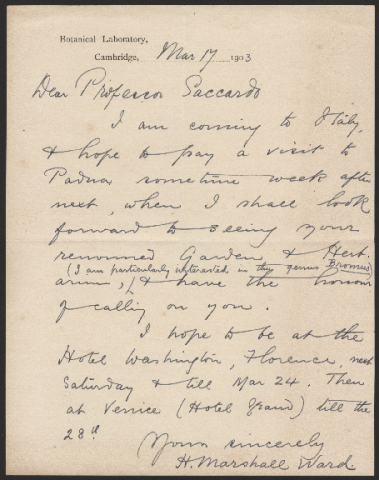 Botanical Laboratory,
Cambridge, Mar 17 1903
Dear Professor Saccardo
I am coming to Italy,
& hope to pay a visit to
Padua sometime week after
next, when I shall look
forward to seeing your
renowned Garden & Herb-
(I am particularly interested in the genus Bromus)
arium, & have the honour
of calling on you.
I hope to be at the
Hotel Washington, Florence, next
Saturday & till Mar 24. Then
at Venice (Hotel Grand) till the
28th
Yours sincerely
H. Marshall Ward.